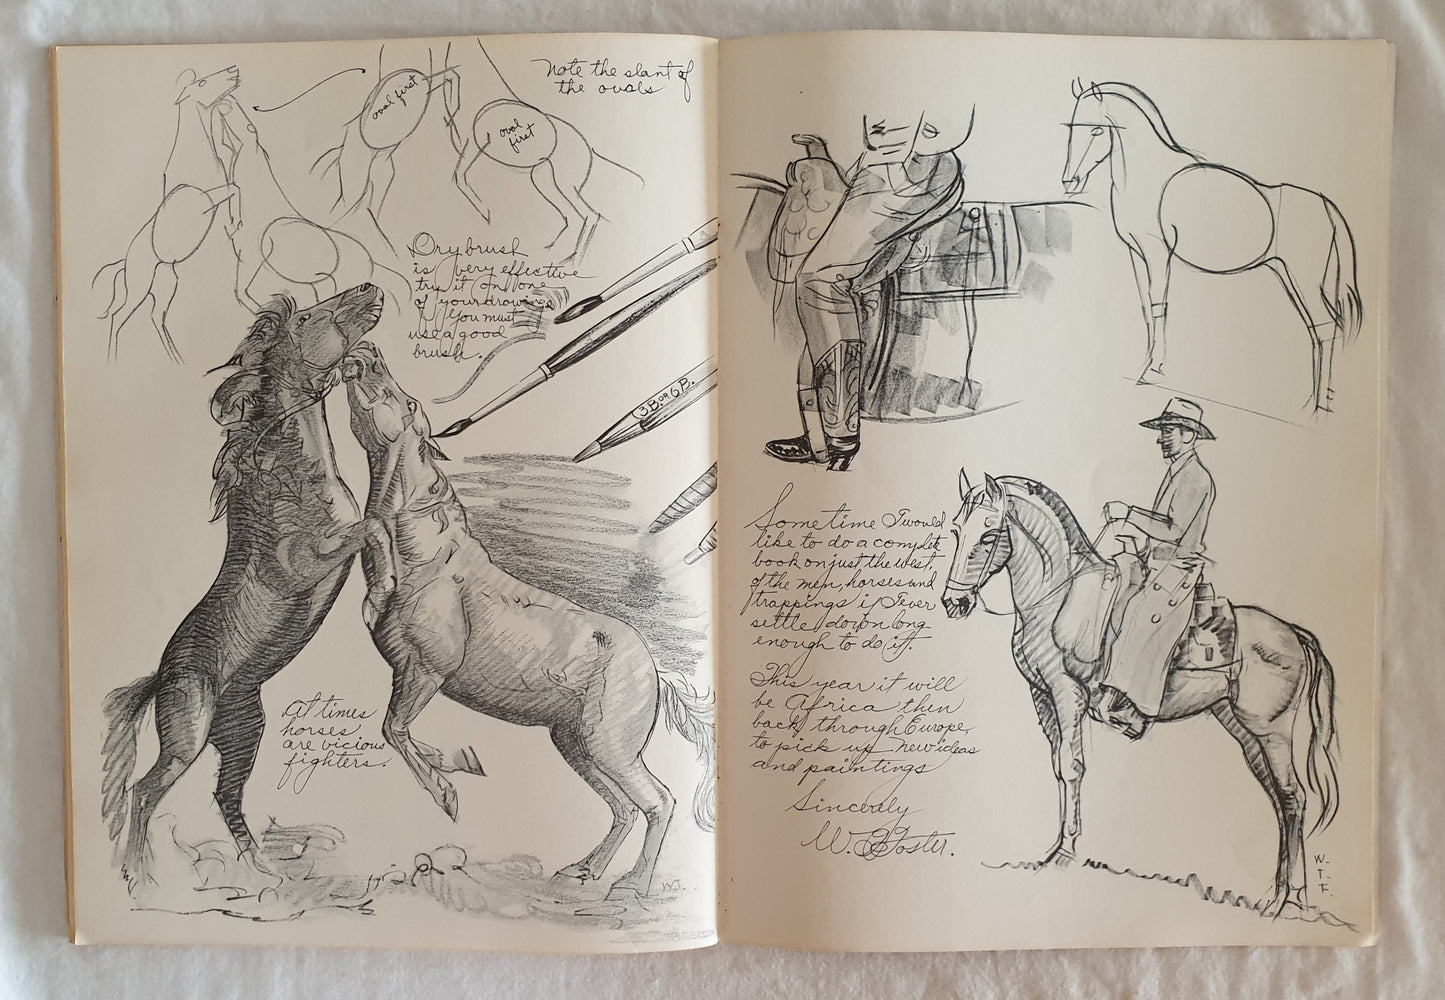 Note the slant of
the ovals
oval first
oval
first
Dry brush
is very effective
try it on one
of your drawings
You must
use a good
brush.
3B or 6B.
At times
horses
are vicious
fighters.
W.T.
Sometime I would
like to do a complete
book on just the west,
of the men, horses and
trappings if I ever
settle down long
enough to do it.
This year it will
be Africa then
back through Europe,
to pick up new ideas
and paintings
Sincerely
W. T. Foster.
W-
T-
F.